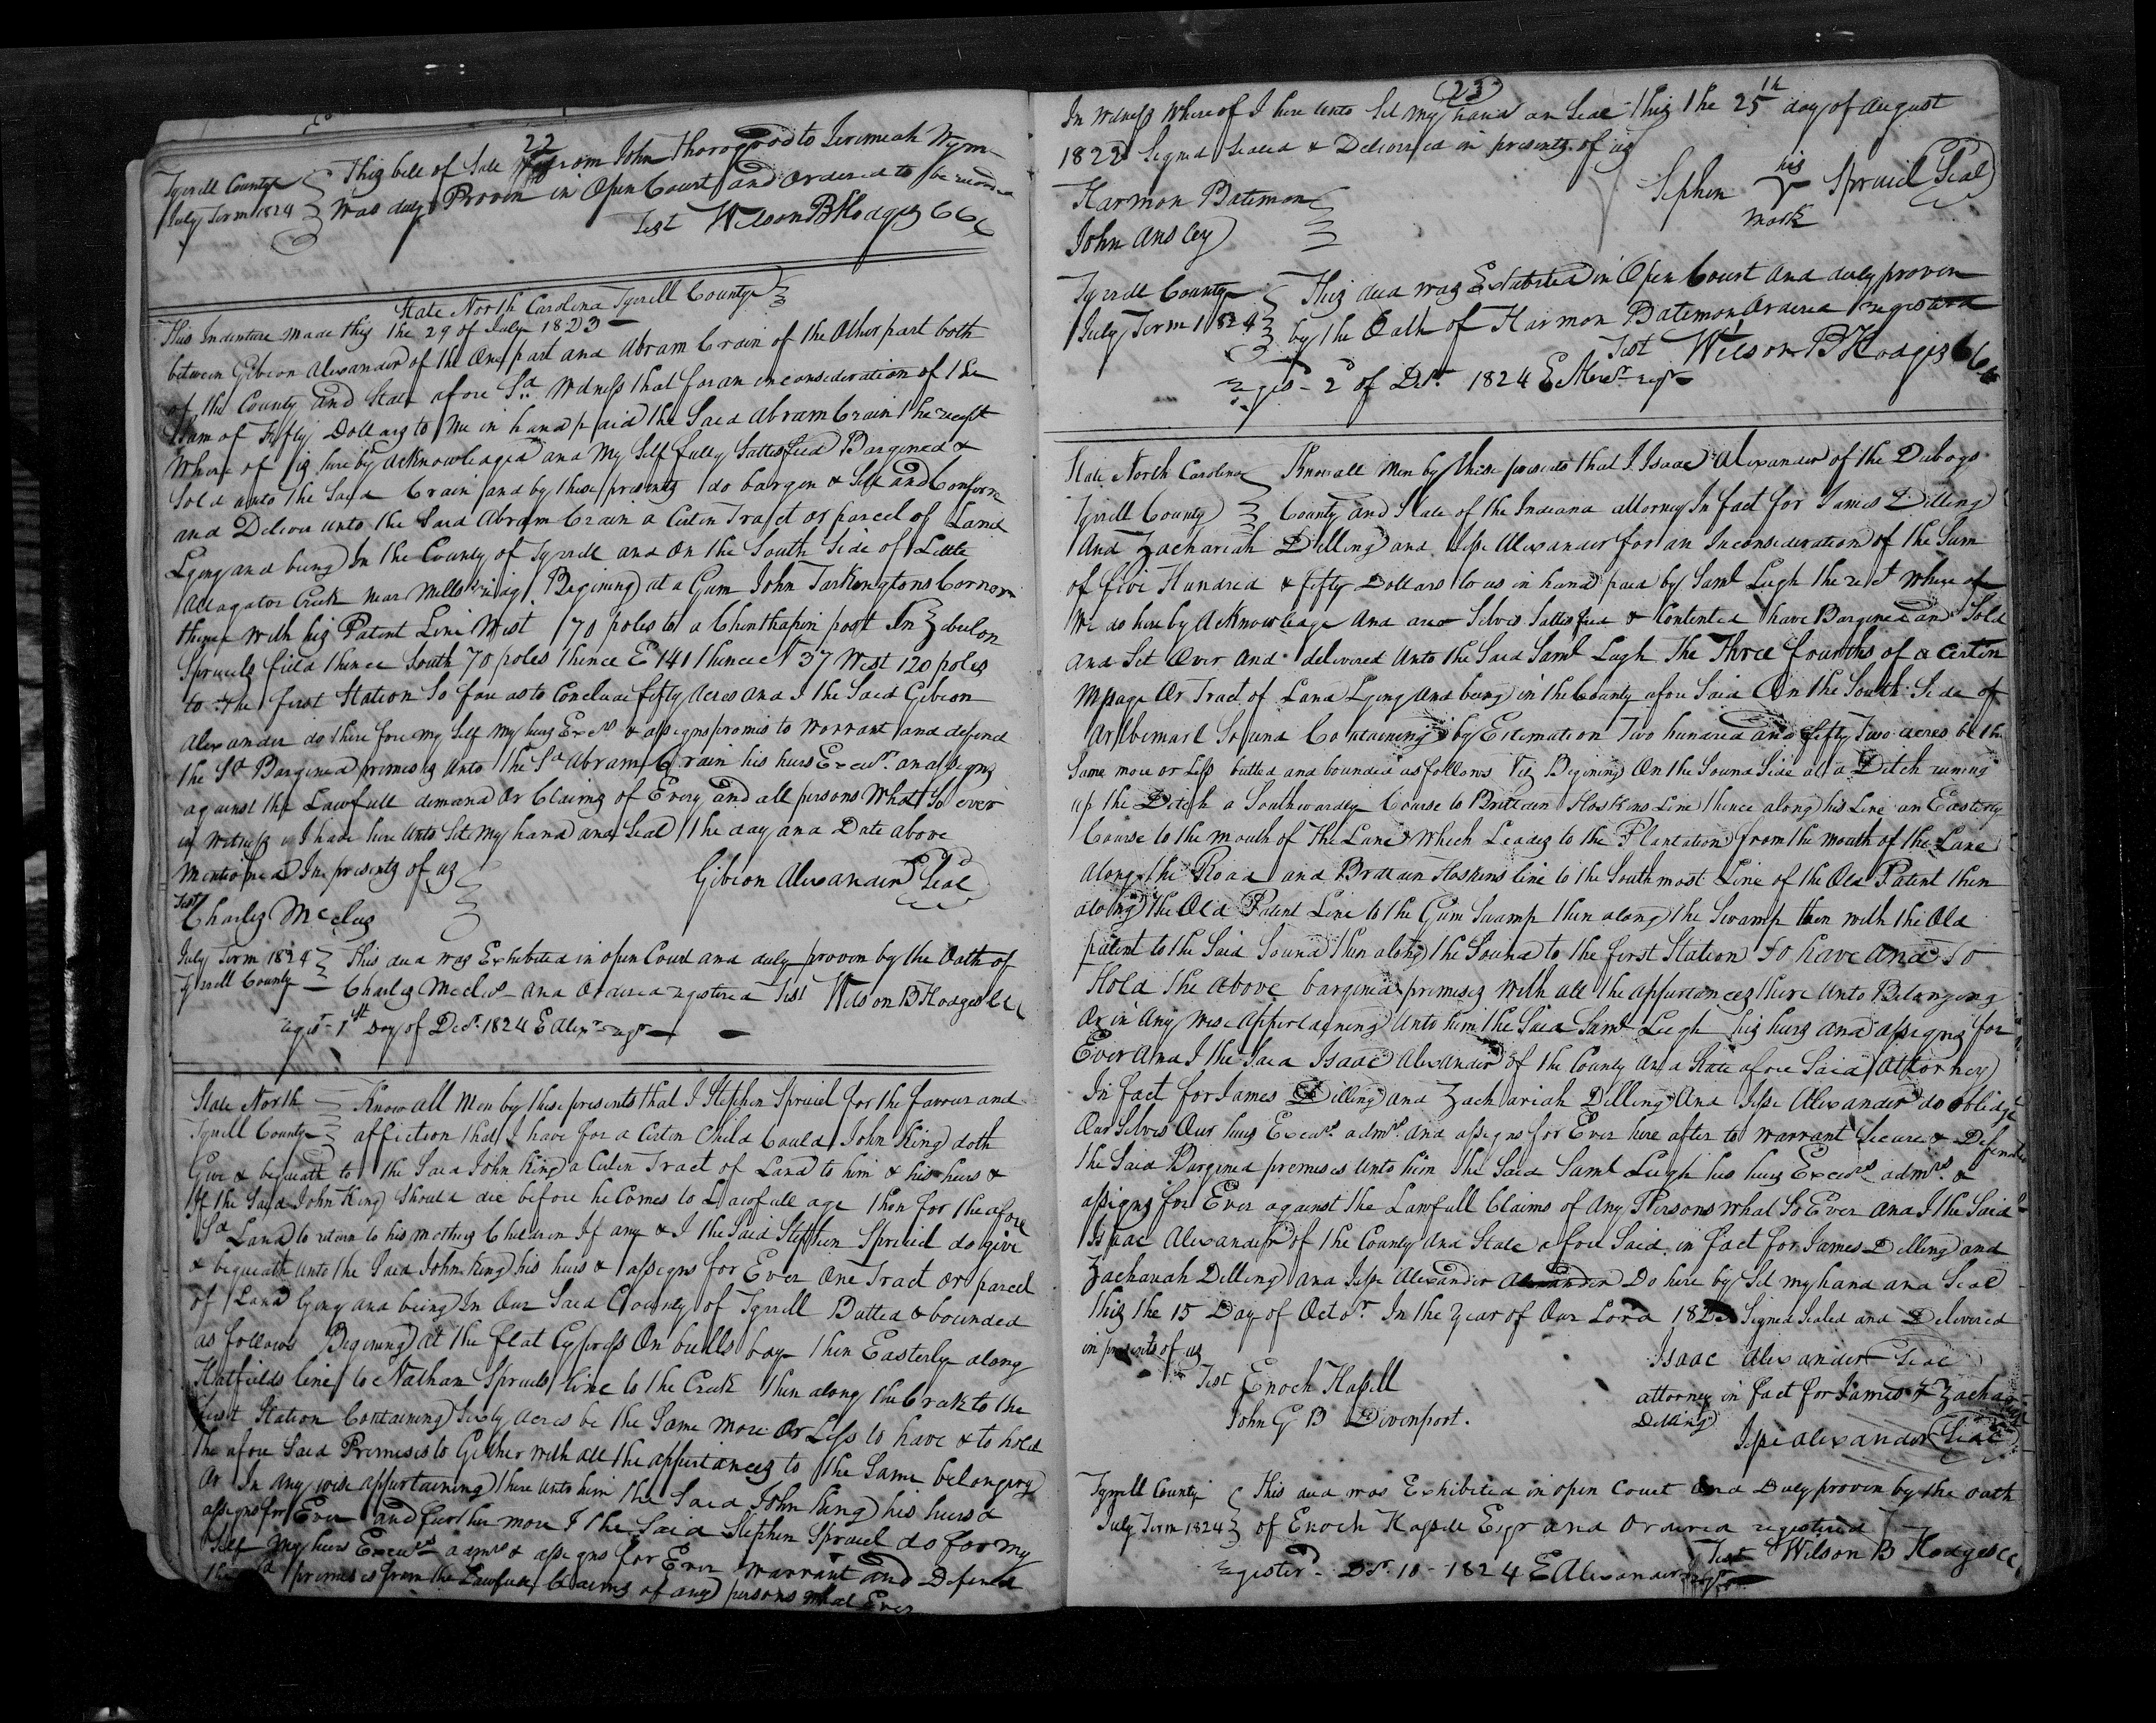 22
Tyrrell County This bill of Sale from John Thorogood to Jeremeah Wynn
July Term 1824 Was duly Proven in Open Court and ordered to be recorded
Test Wilson B Hodges CCC
State North Carolina Tyrrell County
This Indenture made this the 29 of July 1823
between Gibeon Alexander of the One part and Abram Crain of the Other part both
of the County and State afore Sd Witness that for an inconsideration of the
Sum of Fifty Dollars to Me in hand paid the Said Abram Crain the recept
Where of is here by acknowledged and My Self fully Sattisfied Bargened &
Sold unto the Said Crain and by these presents do bargen & Sell and Conferm
and Deliver unto the Said Abram Crain a Certen Tract or parcel of Land
Lying and being In the County of Tyrrell and On the South Side of Little
Allagator Creek near Mells Begining at a Gum John Tarkengtons Corner
thence With his Patent Line West 170 poles to a Chinthapin post In Zebulon
Spruels field thence South 70 poles thence E 141 thence N 37 West 120 poles
to the first Station So far as to Conclude fifty Acres and I the Said Gibeon
Alexander do there fore my Self my heirs Execrs & assigns promis to Worrant and defend
the Sd Bargined premises unto the Sd Abram Crain his heirs Execrs an assigns
against the Lawfull demand Or Claims of Every and all persons What So ever
in witness I have here unto Set my hand and Seal the day and Date above
Mentioned In presents of us Gibeon Alexander Seal
Test
Charles McClees
July Term 1824 This deed was Exhibited in open Court and duly proven by the Oath of
Tyrrell County Charles McClees and Ordered registered Test Wilson B Hodges CCC
regist 1st Day of Decr 1824 E Alexr regr
State North Know all Men by these presents that I Stephen Spruiel for the favour and
Tyrrell County affiction that I have for a Certen Child Could John King doth
Give & bequeath to the Said John King a Certen Tract of Land to him & his heirs &
If the Said John King Should die before he Comes to Lawfull age then for the afore
Sd Land to return to his mothers Children If any & I the Said Stephen Spruiel do give
& bequeath unto the Said John King his heirs & assigns for Ever One Tract or parcel
of Land lying and being In Our Said County of Tyrrell Butted & bounded
as follows Begining at the flat Cypress On bulls bay then Easterly along
Hatfields line to Nathan Spruels line to the Creek then along the Creek to the
first Station Containing Sixty Acres be the Same more Or Less to have & to hold
the afore Said Premises to Gether with all the appurtances to the Same belonging
Or In any wise appurtaining there unto him the Said John King his heirs &
assigns for Ever and further more I the Said Stephen Spruiel do for my
Self my heirs Execurs admrs & assigns for Ever Warrant and Defend
the premises from the Lawfull Claims of any persons what Ever
(23)
In Witness Where of I here unto Set My hand an Seal this the 25th day of August
1822 Signed Sealed & Delivered in presents of us
Harmon Batemon Sephen his Spruiel Seal
John Ansley mark
Tyrrell County This deed was Exhibited in Open Court and duly proven
July Term 1824 by the Oath of Harmon Batemon Ordered registered
Test Wilson B Hodges CCC
regis 2d of Decr 1824 E Alexr regr
State North Carolina Know all Men by these presents that I Isaac Alexander of the Duboys
Tyrrell County County and State of the Indeana attorney In fact for James Dilling
And Zachariah Dilling and Jesse Alexander for an Inconsideration of the Sum
of five Hundred & fifty Dollars to us in hand paid by Saml Leigh the rect Where of
We do here by Acknowledge and are Selves Sattisfied & Contented have Bargened and Sold
and Set Over and delivered unto the Said Saml Leigh The Three fourths of a Certen
Mesage Or Tract of Land Lying and being in the County afore Said On the South Side of
Arlbemarl Sound Containing by Estemation Two hundred and fifty Two acres be the
Same more or Less butted and bounded as follows Viz Begining On the Sound Side at a Ditch runing
up the Ditch a Southwardly Course to Brittain Hoskins Line thence along his Line an Easterly
Course to the mouth of the Lane which Leades to the Plantation from the mouth of the Lane
along the Road and Brittain Hoskins line to the Southmost Line of the Old Patent then
along the Old Patent Line to the Gum Swamp then along the Swamp then with the Old
patent to the Said Sound then along the Sound to the first Station To have and to
Hold the above bargined premises With all the appurtances there unto Belonging
Or in Any wise Appertaening unto him the Said Saml Leigh his heirs and assigns for
Ever And I the Said Isaac Alexander of the County and State afore Said Attorney
In fact for James Dilling and Zachariah Dilling And Jesse Alexander do oblidge
Our Selves Our heirs Execurs admrs and assigns for Ever here after to Warrant Secure & Defend
the Said Bargined premises unto him the Said Saml Leigh his heirs Execurs admrs &
assigns for Ever against the Lawfull Claims of Any Persons What So Ever And I the Said
Isaac Alexander of the County and State afore Said in fact for James Dilling and
Zachariah Dilling and Jesse Alexander Do here by Set my hand and Seal
this the 15 Day of Octor In the year of Our Lord Signed Sealed and Delivered
in presents of us Isaac Alexander Seal
Test Enoch Hassell attorney in fact for James & Zachar
John G B Divenport. Dilling
Jesse Alexander Seal
Tyrrell County This deed was Exhibited in open Court and Duly proven by the oath
July Term 1824 of Enoch Hassell Esqr and Ordered registered
Test Wilson B Hodges CC
register Dr 10 1824 E Alexander regr